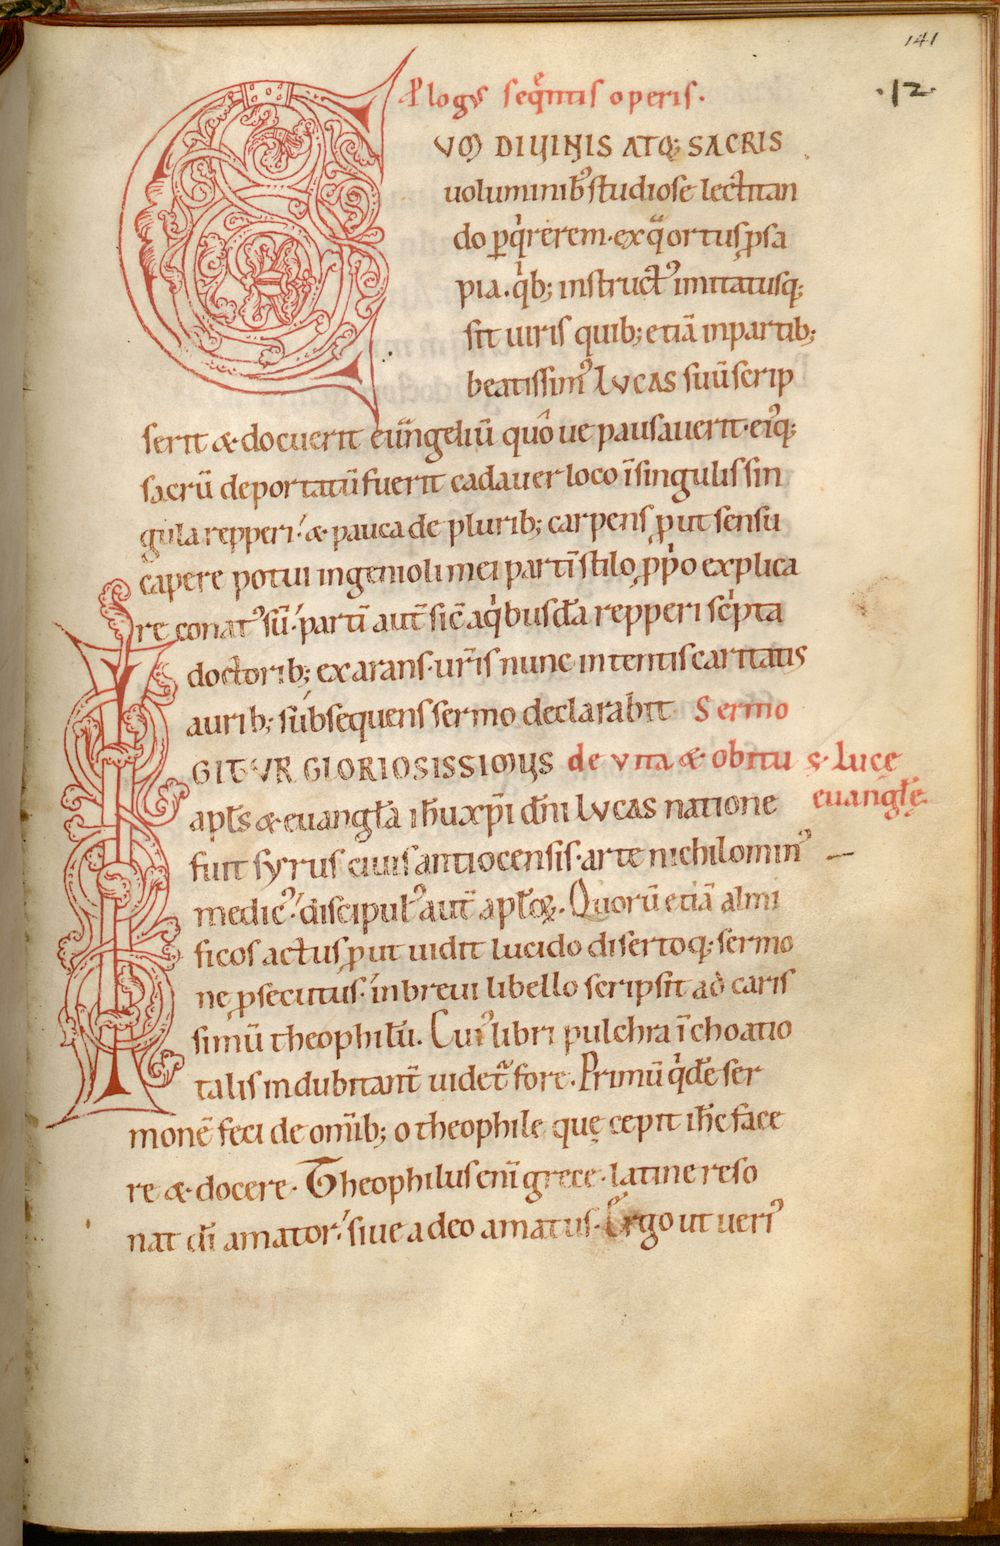 141
·12·
P̄logꝰ seqͥntis operis·
CVM DIUINIS ATQ; SACRIS
uoluminibꝰ studiose lectitan
do ꝑqͥrerem· ex qͣ ortus ꝓsa
pia· qͥb; instructꝰ imitatusq;
sit uiris quib; etiā in partib;
beatissimꝰ LVCAS suū scrip
serit & docuerit euͣngeliū quōue pausauerit· eiꝰq;
sacrū deportatū fuerit cadauer loco ī singulis sin
gula repperi· & pauca de plurib; carpens ꝓut sensu
capere potui ingenioli mei partī stilo ꝓpͥo explica
re conatꝰ sū· partī aut̄ sic̄ a qͥbusdā repperi scͥpta
doctorib; exarans· ur̄is nunc intentis caritatis
aurib; subsequens sermo declarabit Sermo
IGITVR GLORIOSISSIMUS de vita & obitu s· Lucę
apl̄s & euangl̄a ih̄u xp̄i dn̄i LVCAS natione euangl̄ę·
fuit syrus ciuis antiocensis· arte nichilominꝰ
medicꝰ· discipulꝰ aut̄ apl̄oꝝ· Quorū etiā almi
ficos actus ꝓut uidit lucido disertoq; sermo
ne ꝓsecutus· in breui libello scripsit ad caris
simū theophilū. Cuiꝰ libri pulchra īchoatio
talis indubitant̄ uidetͣ fore· Primū qͥdē ser
monē feci de om̄ib; o theophile quę cepit ih̄c face
re & docere· Theophilus eni̅ grece· latine reso
nat di̅ amator· siue a deo amatus· Ergo ut ueriꝰ